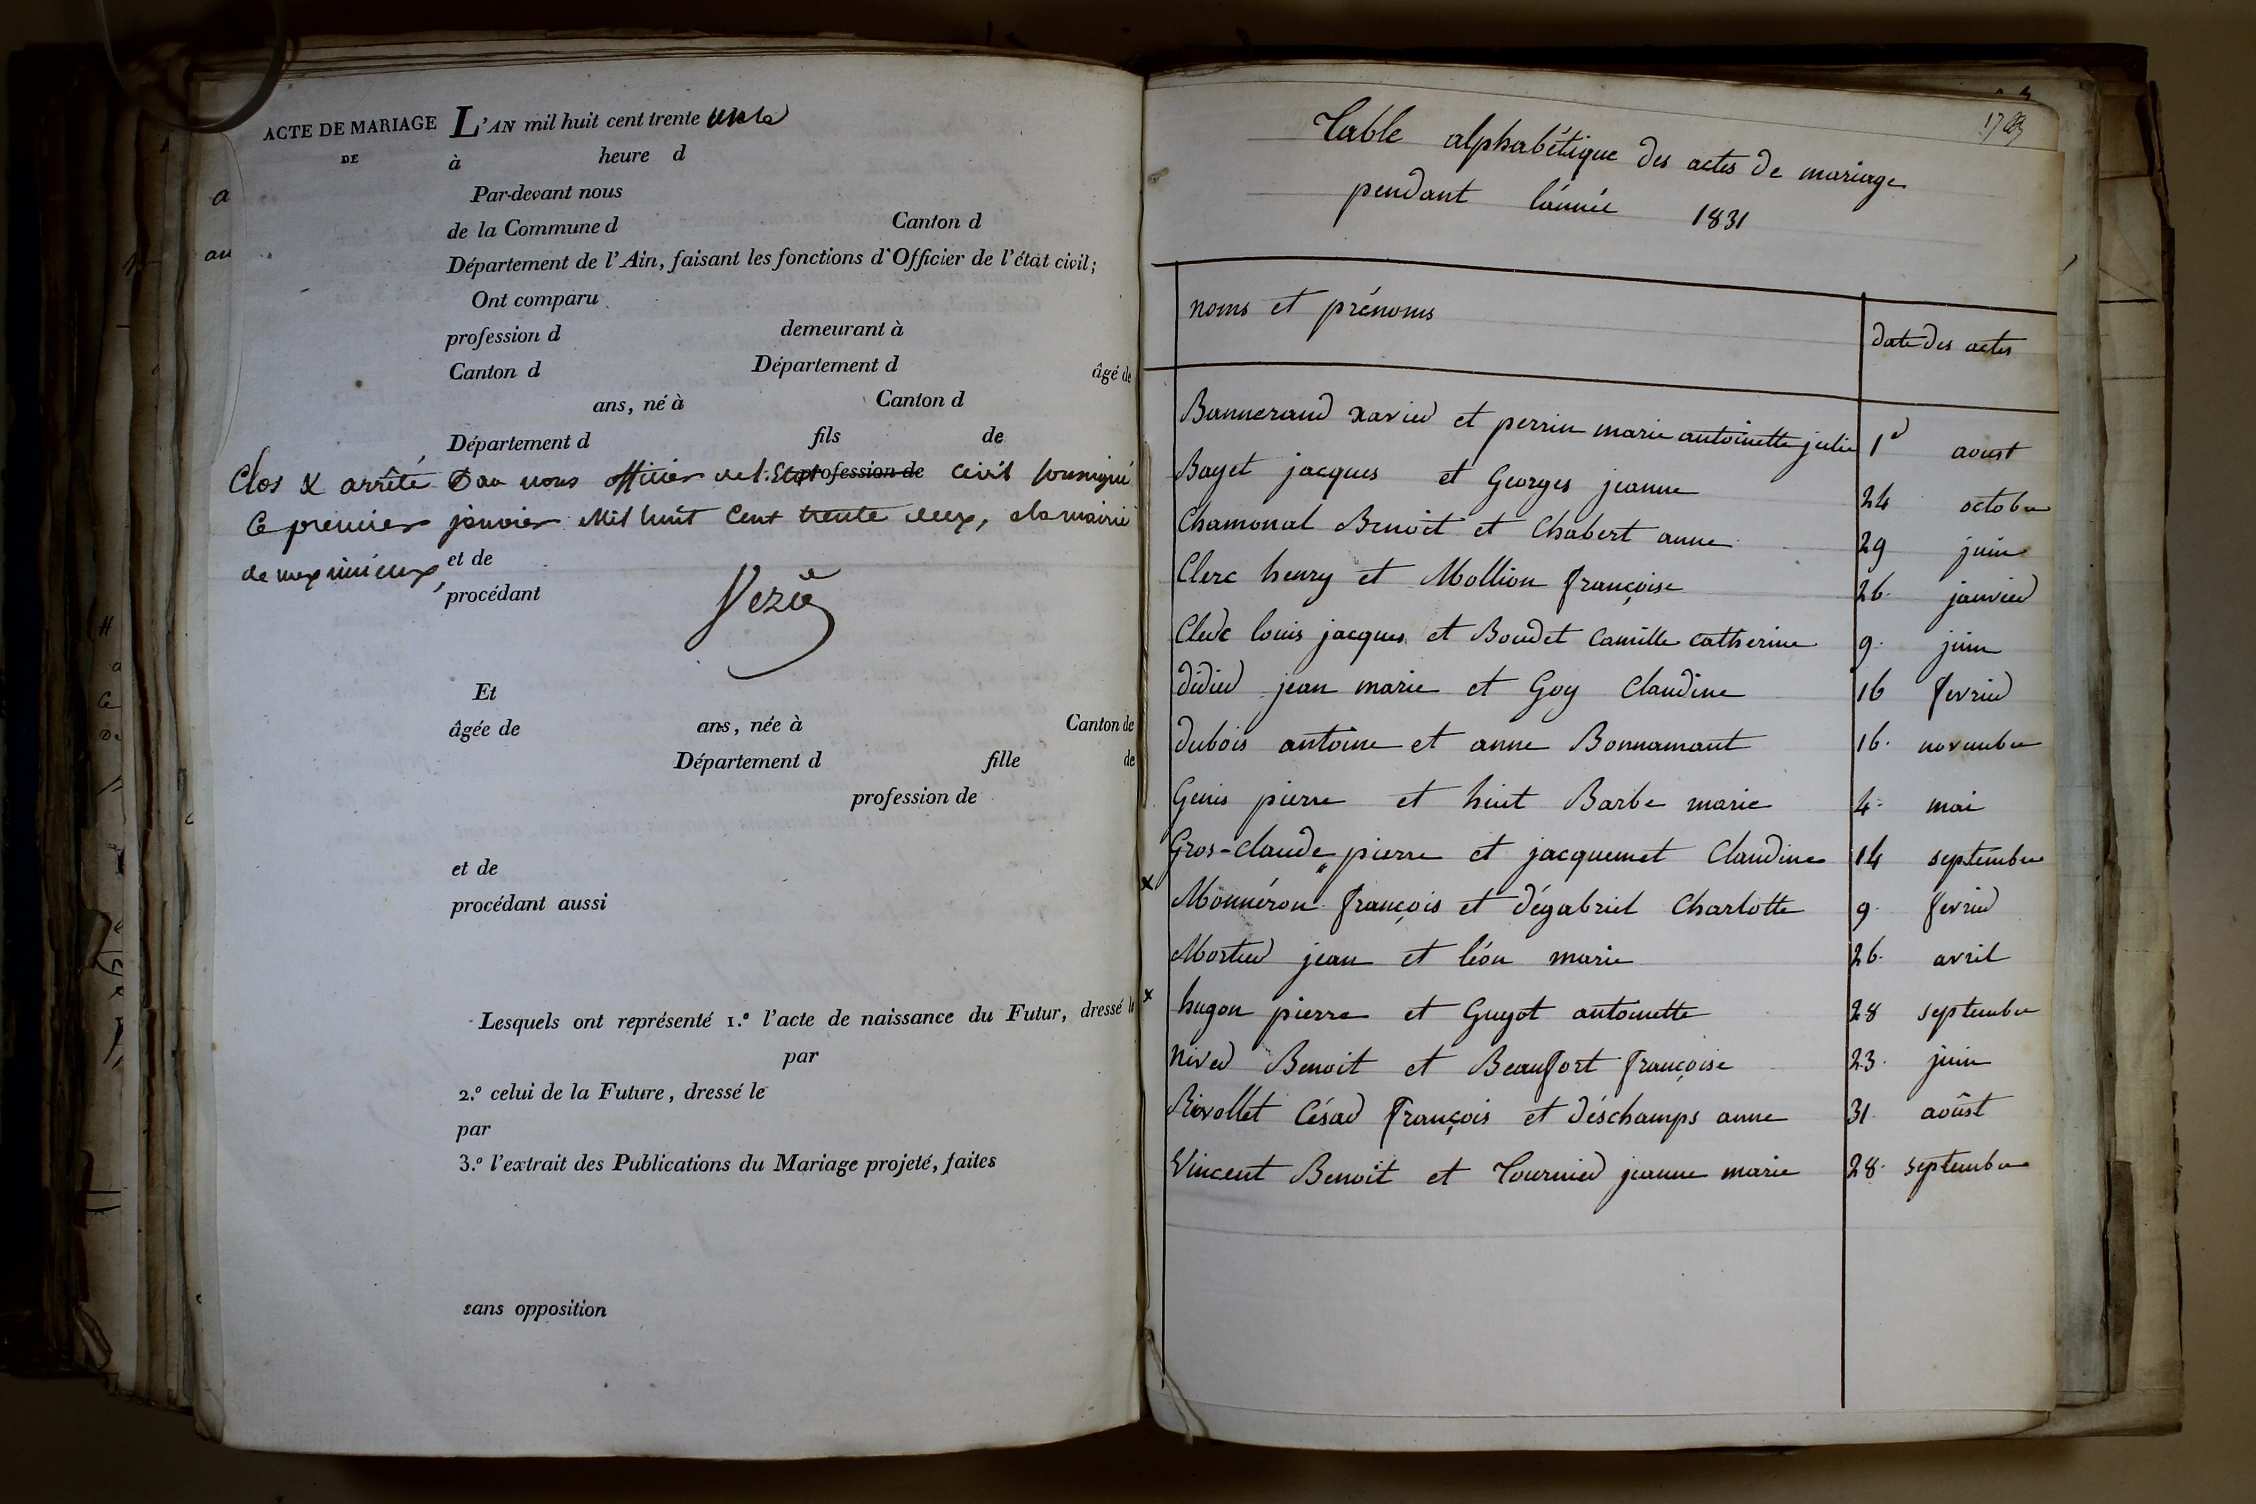 ACTE DE MARIAGE L'AN mil huit cent trente
DE à heure d
Par-devant nous
de la Commune d Canton d
Département de l'Ain, faisant les fonctions d'Officier de l'état civil;
Ont comparu
profession d demeurant à
Canton d Département d âgé de
ans, né à Canton d
Département d fils de
Clos & arrêté par nous officier de l'Etat profession de civil soussigné
le premier janvier mil huit cent trente deux, à la mairie
et de
de meximieux,
procédant
Et
âgée de ans, née à Canton de
Département d fille de
profession de
et de
procédant aussi
Lesquels ont représenté 1.º l'acte de naissance du Futur, dressé le
par
2.º celui de la Future, dressé le
par
3.º l'extrait des Publications du Mariage projeté, faites
sans opposition
Table alphabétique des actes de mariage
pendant l'année 1831
noms et prénoms date des actes
Bannerand xavier et perrin marie antoinette julie 1er aoust
Bayet jacques et Georges jeanne 24 octobre
Chamonal Benoit et Chabert anne 29 juin
Clerc henry et Mollion françoise 26. janvier
Clerc louis jacques et Boudet Camille catherine 9. juin
didier jean marie et Goy Claudine 16 fevrier
dubois antoine et anne Bonnamant 16. novembre
Genis pierre et huit Barbe marie 4. mai
Gros-claude pierre et jacquemet Claudine 14 septembre
x Monnéron françois et dégabriel Charlotte 9. fevrier
Mortier jean et léon marie 26. avril
x hugon pierre et Guyot antoinette 28 septembre
nives Benoit et Beaufort françoise 23. juin
Rivollet César françois et déschamps anne 31 août
Vincent Benoit et Tournier jeanne marie 28. septembre